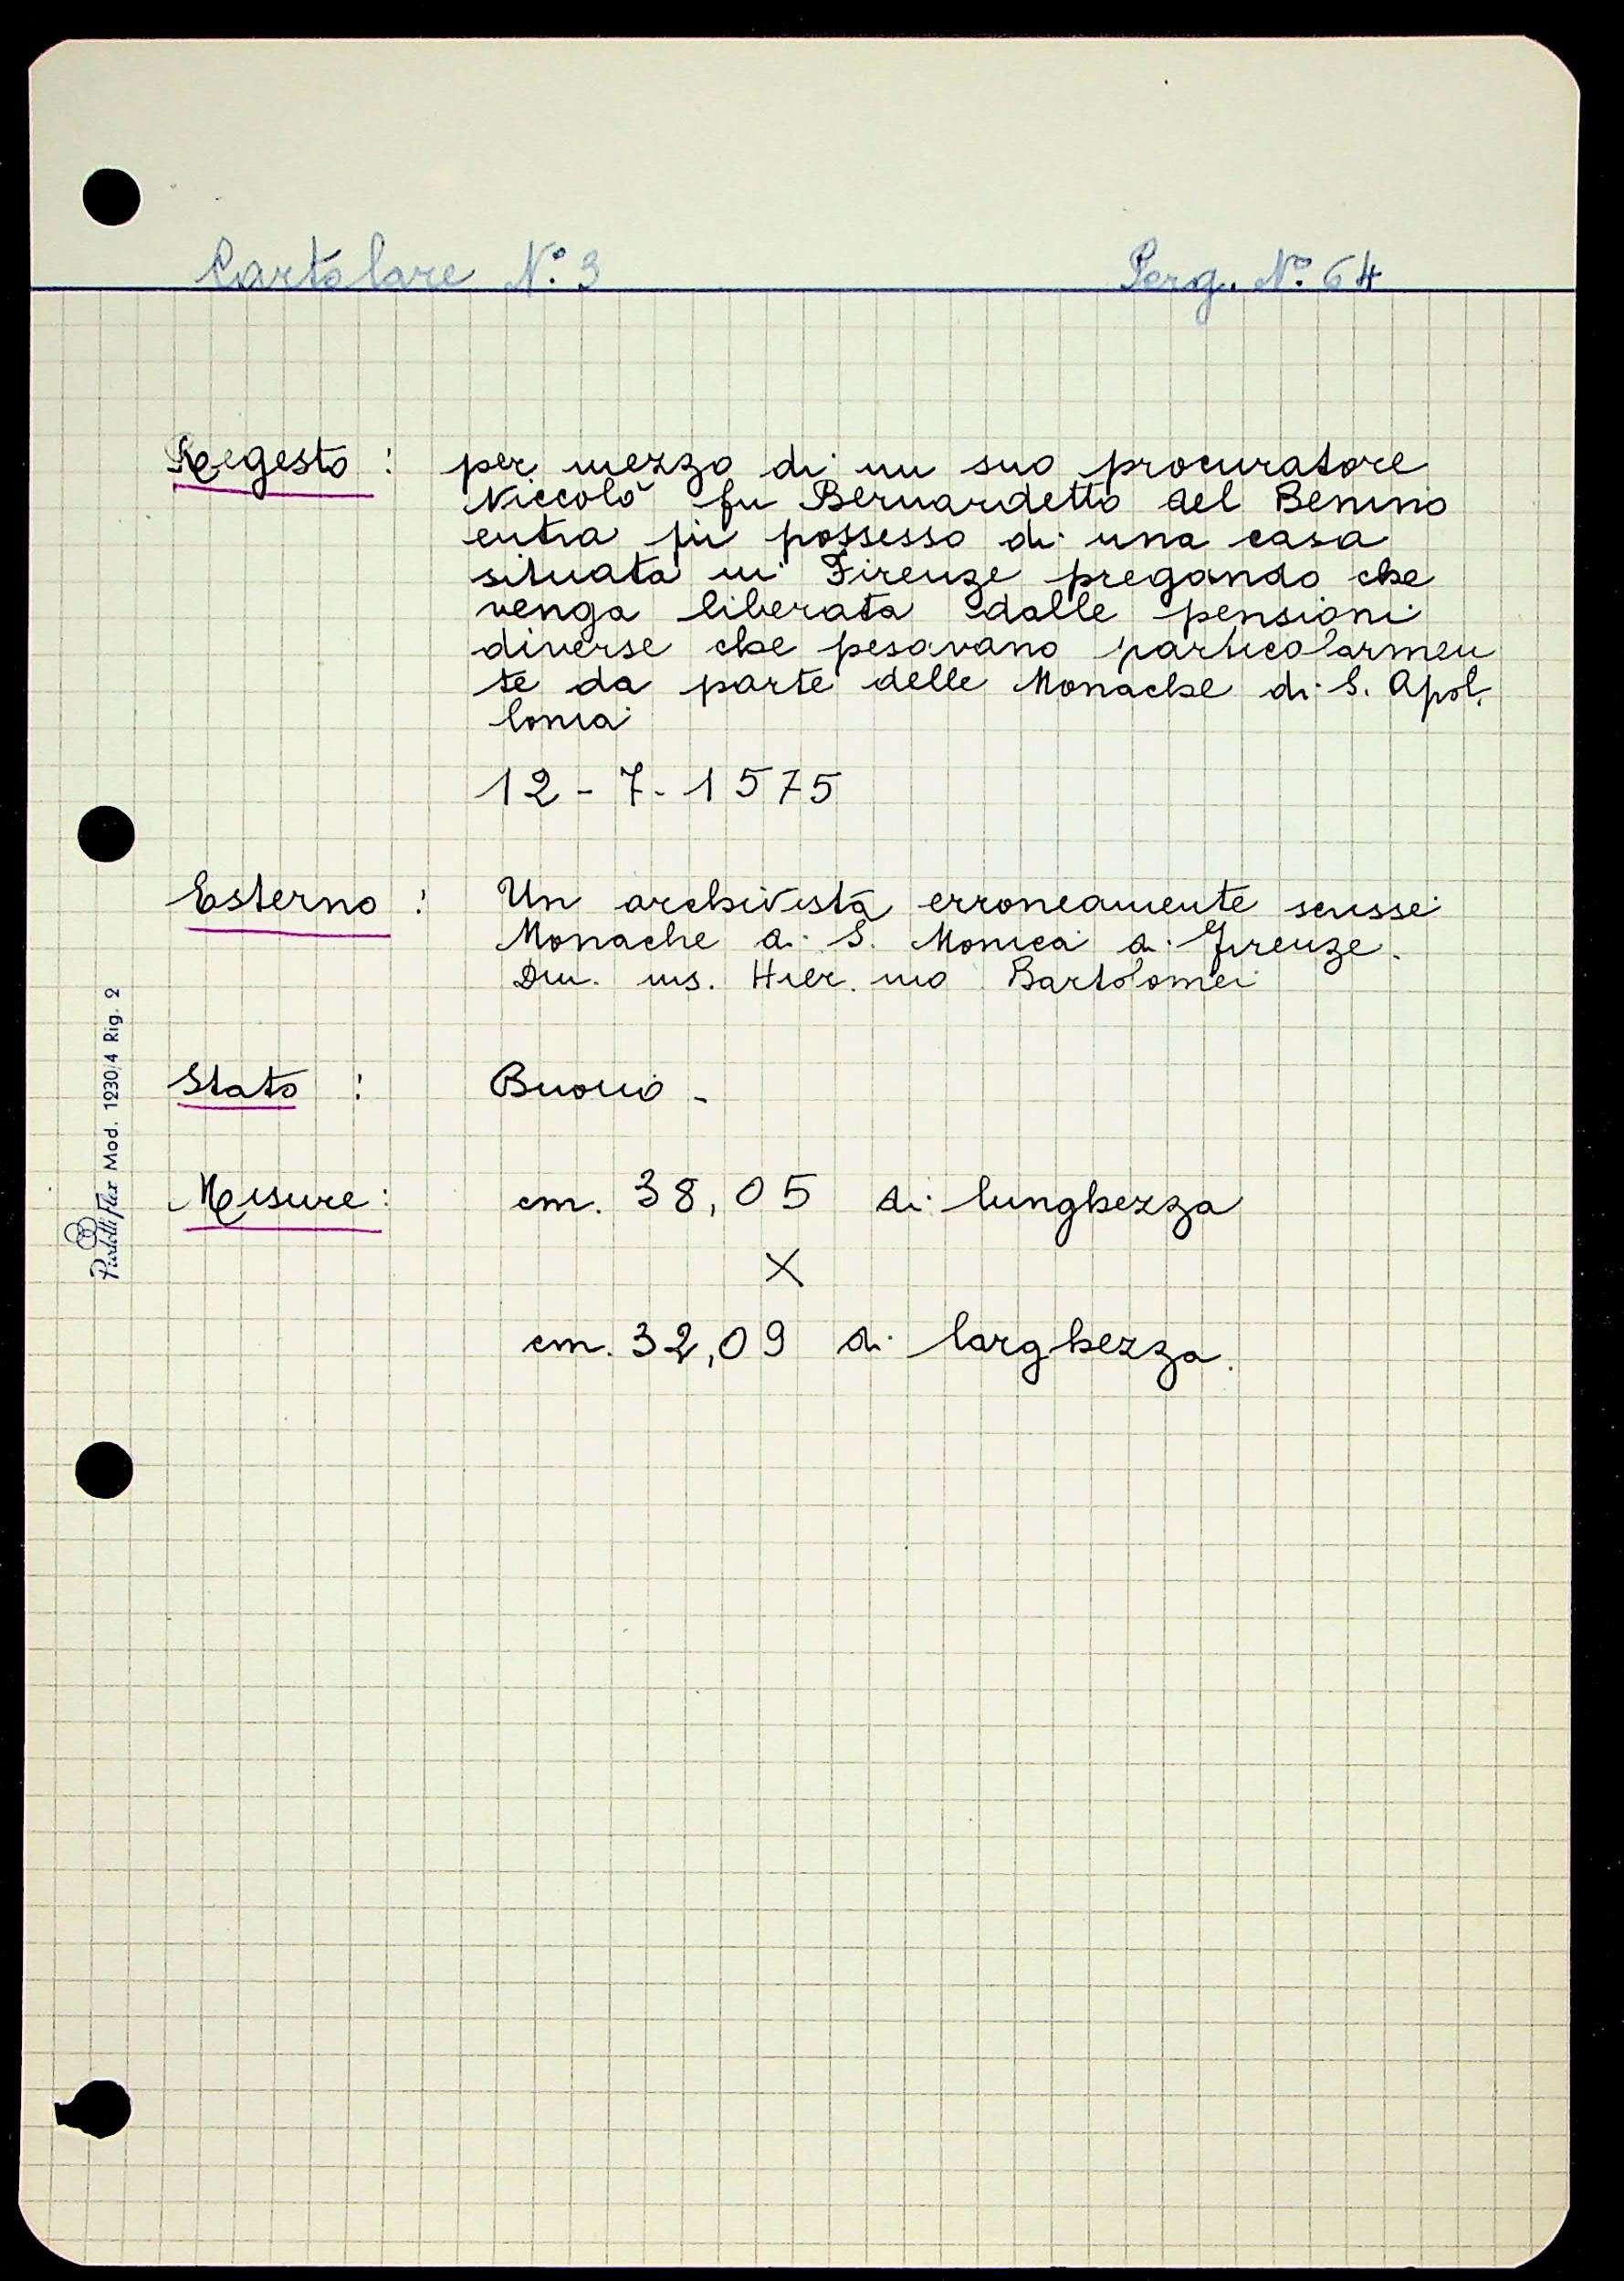 Cartolare N.° 3 Perg. N.° 64
Regesto : per mezzo di un suo procuratore
Niccolò fu Bernardetto del Benino
entra in possesso di una casa
situata in Firenze pregando che
venga liberata dalle pensioni
diverse che pesavano particolarmen
te da parte delle Monache di S. Apol.
lonia
12 - 7 - 1575
Esterno : Un archivista erroneamente scrisse
Monache di S. Monica di Firenze.
ms. Hier. mo Bartolomei
Stato : Buono -
Misure : cm. 38,05 di lunghezza
X
cm. 32,09 di larghezza.
Mod. 1230/4 Rig. 2